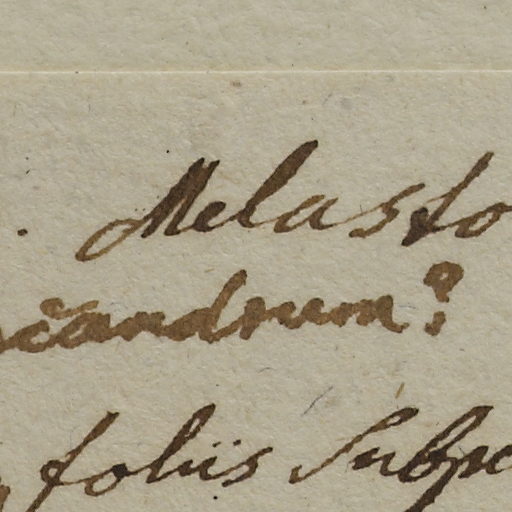 . Melasto
icandrum?
foliis Subpe